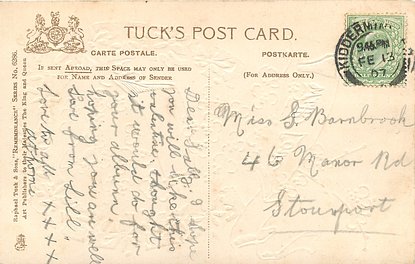 TUCK'S POST CARD.
CARTE POSTALE.
POSTKARTE.
IF SENT ABROAD, THIS SPACE MAY ONLY BE USED
FOR NAME AND ADDRESS OF SENDER
(FOR ADDRESS ONLY.)
Raphael Tuck & Sons, "REMEMBRANCE" SERIES No. 6386.
Art Publishers to their Majesties The King and Queen
KIDDERMINSTER
FE 13
Dear Sally, I hope
you will like this
valentine, thought
it would do for
your album.
hoping you are well
love from Lill.
Love to all x x x x
at home
Miss S. Barnbrook
46 Manor Rd
Stourport